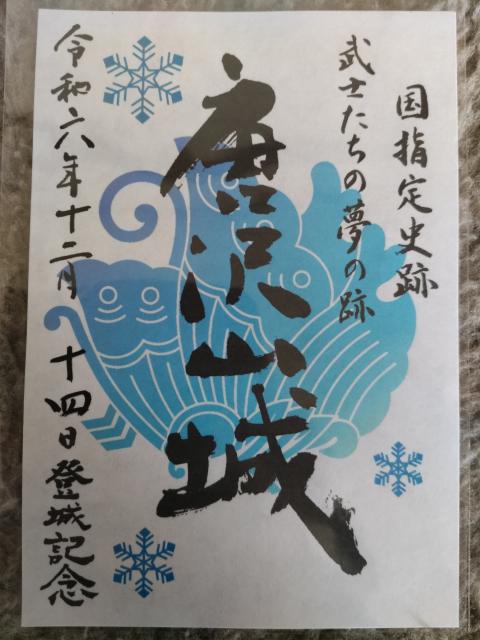 国指定史跡
武士たちの夢の跡
唐沢山城
令和六年十二月十四日登城記念